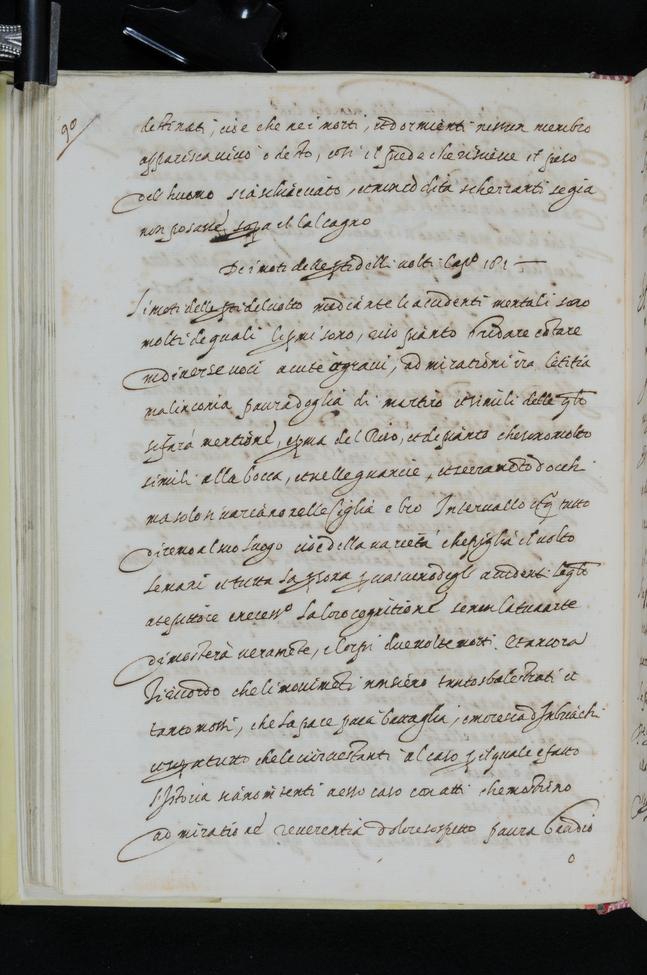 90
destinati, cioè che nei morti, et dormienti nessun membro
apparisca vivo o desto, così il piede che riceve il peso
del huomo sia schiacciato, et non con dita scherzanti se gia
non posasse sopa el calcagno
De i moti delle pti delli volti. Capº 181 —
Li moti delle pti del volto mediante le accidenti mentali sono
molti de quali li pmi sono, riso pianto gridare cantare
in diverse voci acute et gravi, admirationi ira letitia
malinconia paura doglia di martiro et simili delle qli
si fara mentione, et pma del Riso, et del pianto che sono molto
simili alla bocca, et nelle guancie, et serramento d'occhi
ma solo si variano nelle ciglia e loro Intervallo et q tutto
diremo al suo luogo cioè della varietà che piglia il volto
le mani et tutta la psona p ciascuno degli accidenti de qli
a te pittore è necessº la loro cognitione se non la tua arte
dimosterà veramete, e i corpi due volte morti. Et ancora
ti ricordo che li movimeti non sieno tanto sbalestrati et
tanto mossi, che la pace paia battaglia, o moresca d'Inbriachi
et sopa tutto che le circustanti al caso p il quale è fatto
l'Istoria siano intenti a esso caso con atti che mostrino
admiratione reverentia dolore sospetto paura Gaudio
o